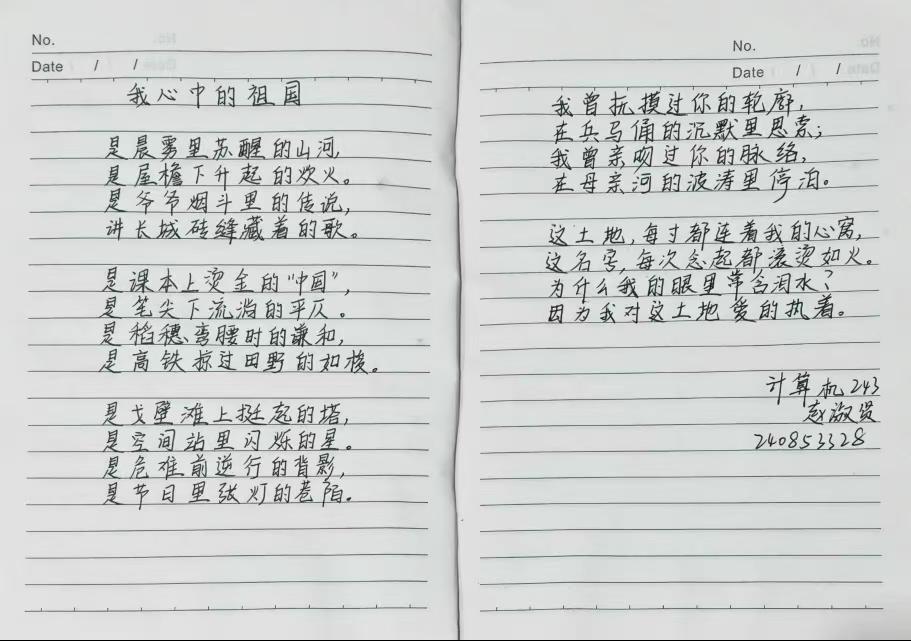 No.
Date / /
我心中的祖国
是晨雾里苏醒的山河,
是屋檐下升起的炊火。
是爷爷烟斗里的传说,
讲长城砖缝藏着的歌。
是课本上烫金的“中国”,
是笔尖下流淌的平仄。
是稻穗弯腰时的谦和,
是高铁掠过田野的如梭。
是戈壁滩上挺起的塔,
是空间站里闪烁的星。
是危难前逆行的背影,
是节日里张灯的巷陌。
No.
Date / /
我曾抚摸过你的轮廓,
在兵马俑的沉默里思索;
我曾亲吻过你的脉络,
在母亲河的波涛里停泊。
这土地,每寸都连着我的心窝,
这名字,每次念起都滚烫如火。
为什么我的眼里常含泪水?
因为我对这土地爱的执着。
计算机243
赵淑贤
240853328